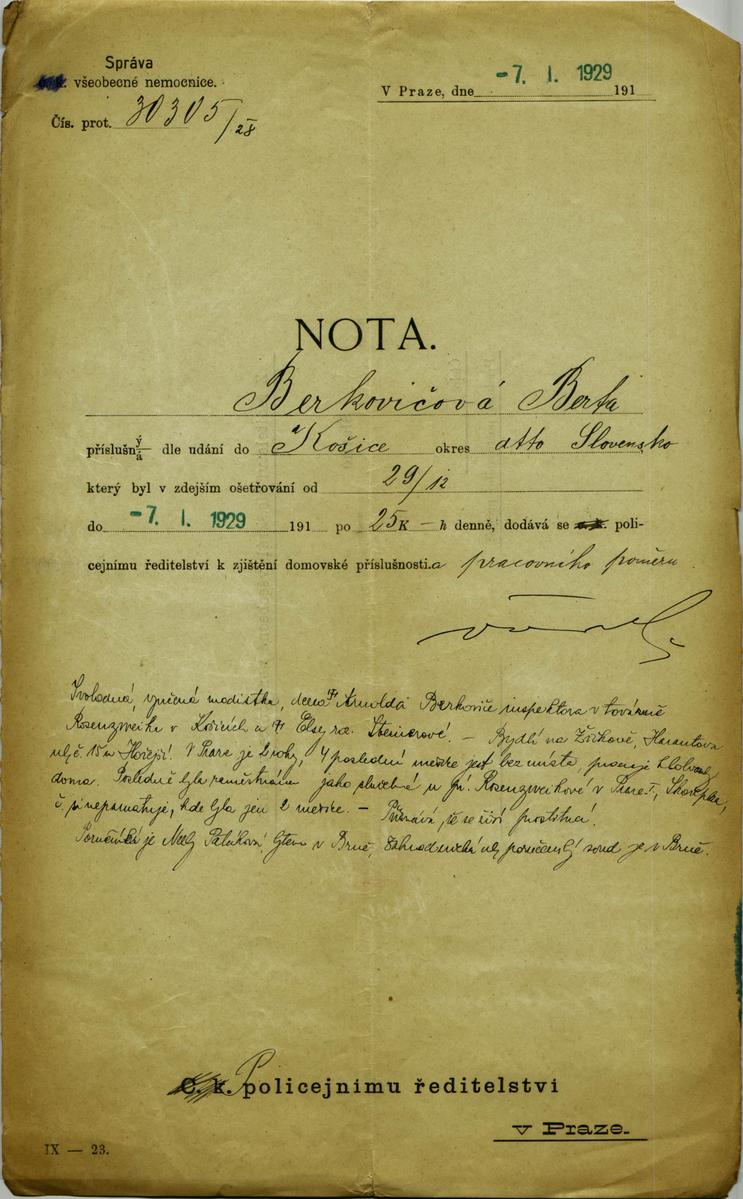 Správa
c. k. všeobecné nemocnice.
-7. I. 1929
V Praze, dne 191
Čís. prot. 30305/28
NOTA.
Berkovičová Berta
příslušný/á dle udání do Košice okres dtto Slovensko
který byl v zdejším ošetřování od 29/12
do -7. I. 1929 191 po 25 K — h denně, dodává se c. k. poli-
cejnímu ředitelství k zjištění domovské příslušnosti. a pracovního poměru
Svobodná, modistka, dcera Arnolda Berkoviče inspektora v továrně
Rosenzweika v Košicích a Elsy roz. Steinerové. — Bydlí na Žižkově, Harantova
ul. č. 15 u Hořejší. V Praze je 2 roky, 4 poslední měsíce jest bez místa, pracuje
doma. Posledně byla zaměstnána jako služebná u pí. Rosenzweikové v Praze I,
č. p. nepamatuje, kde byla jen 2 měsíce. —
je v Brně, soud je v Brně.
C. k. Policejnímu ředitelství
v Praze.
IX — 23.